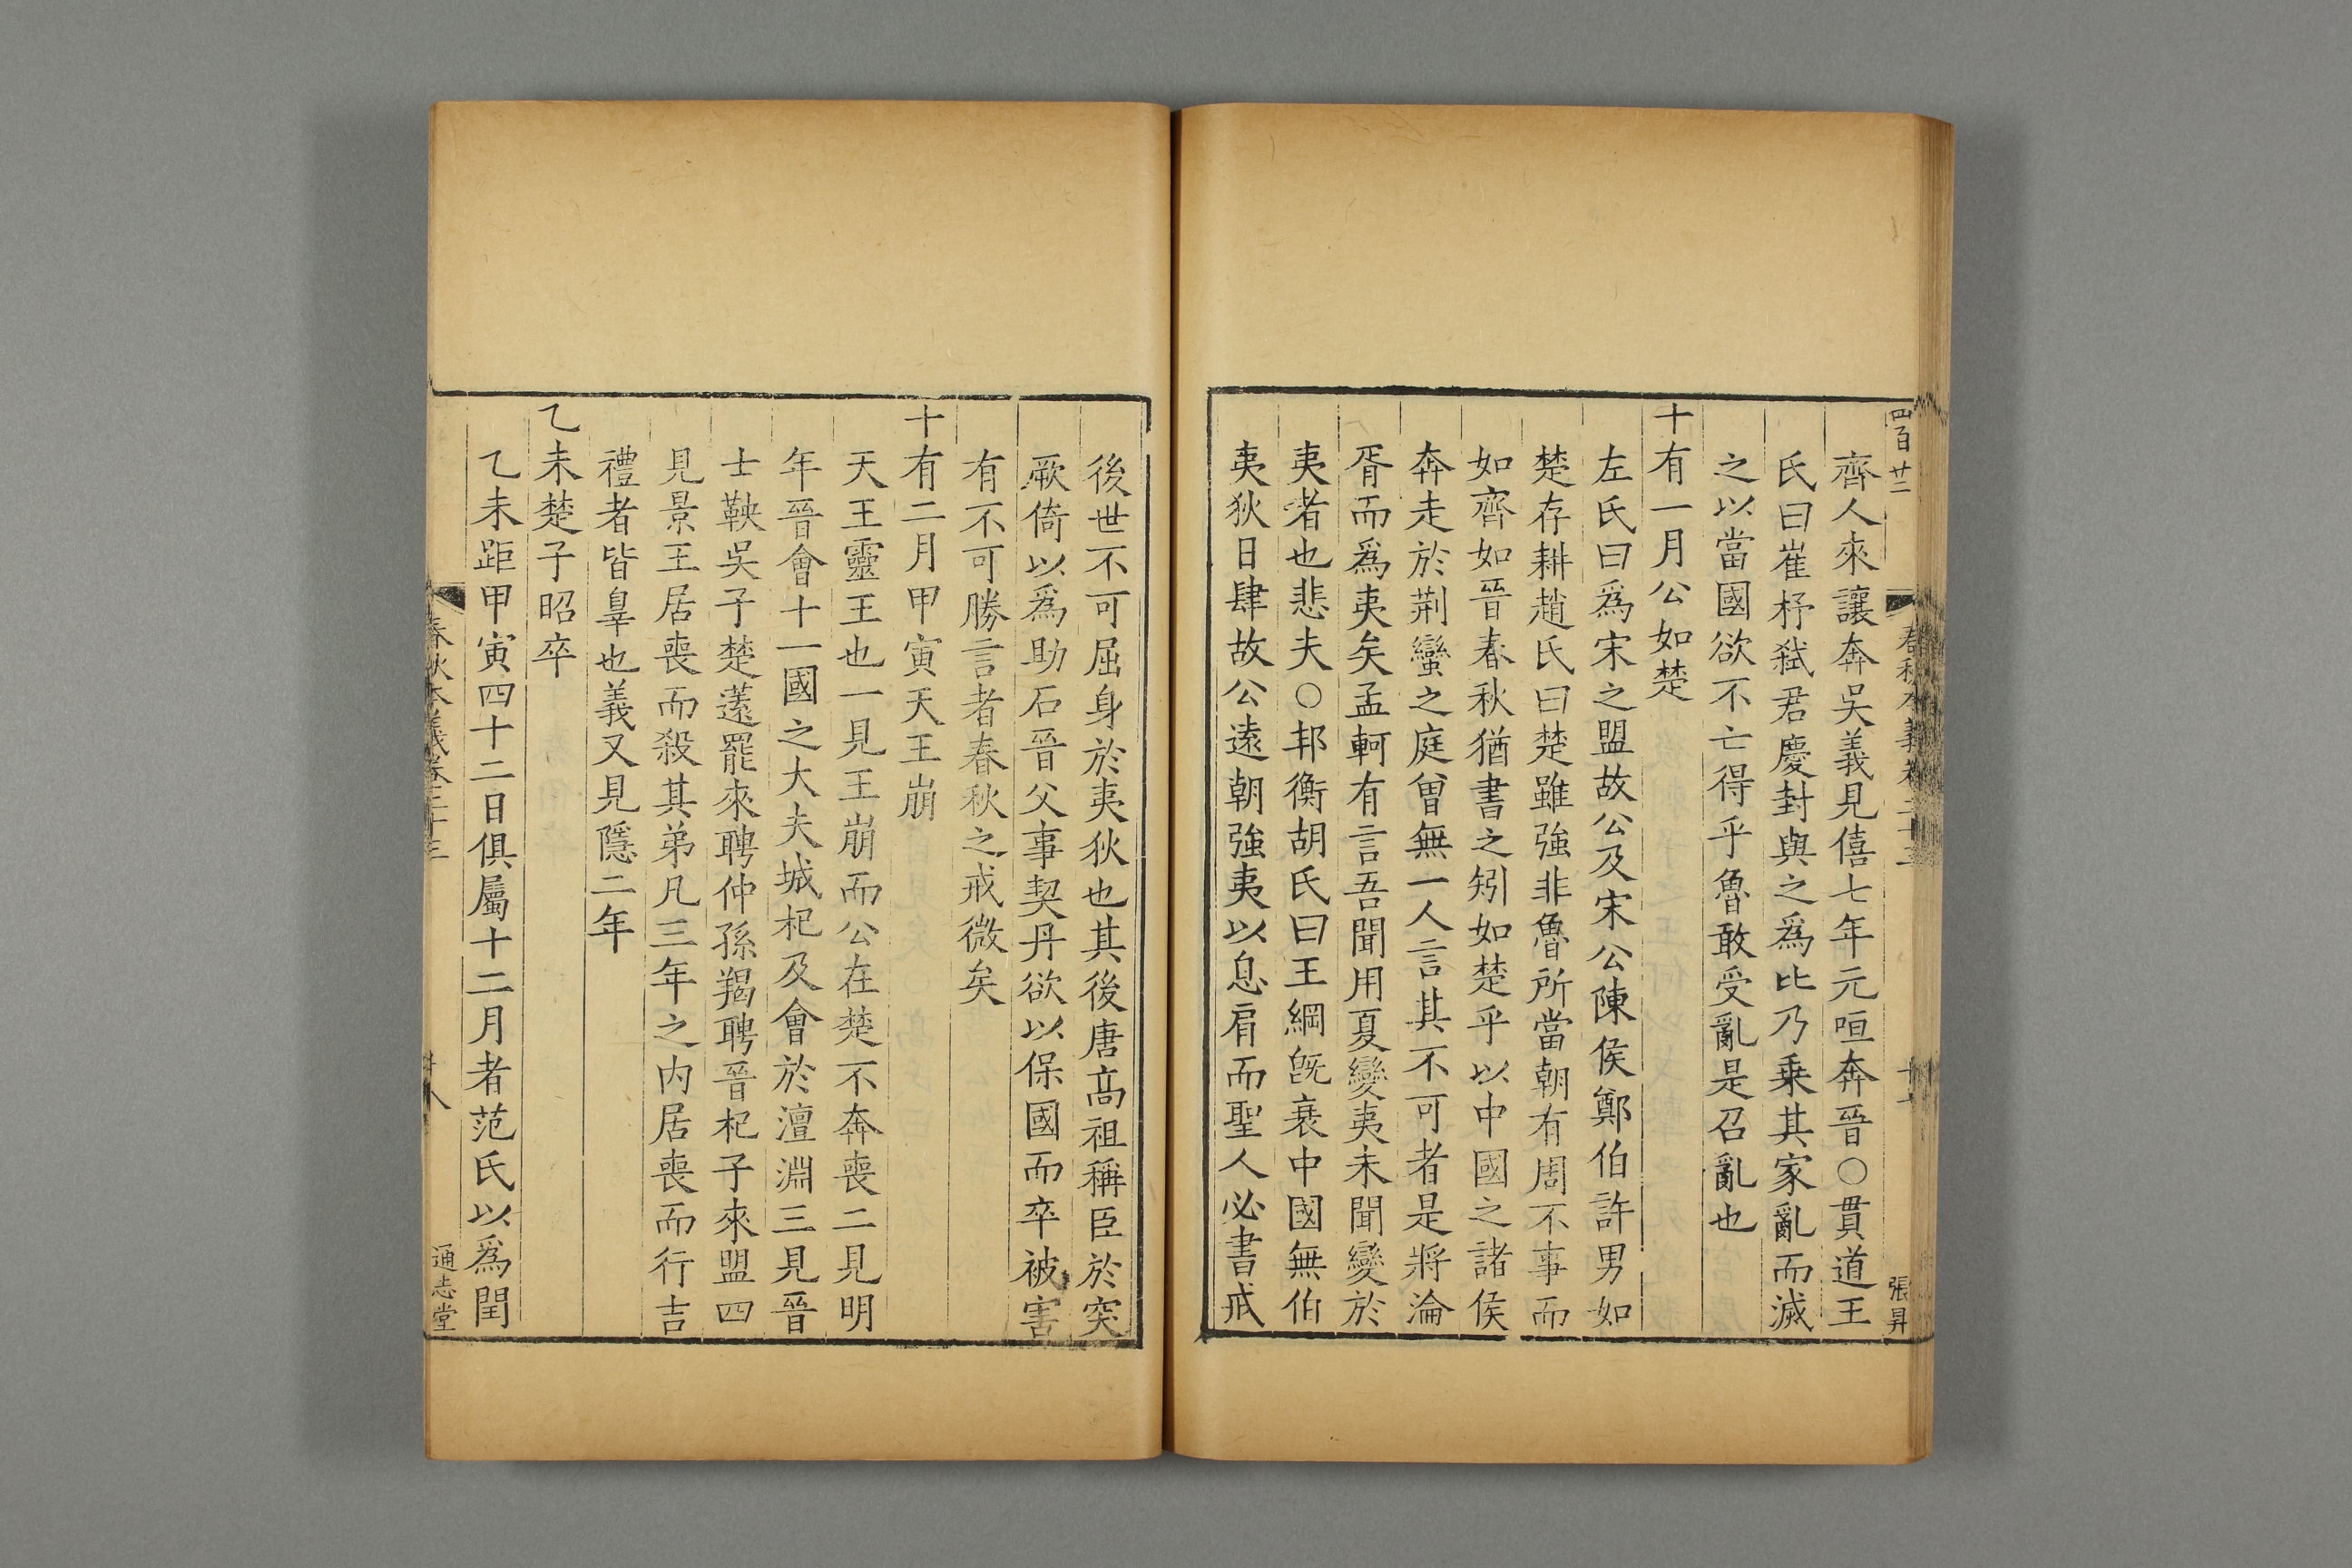 四百廿二
春秋本義卷二十三
張昇
齊人來讓奔吳義見僖七年元咺奔晉○貫道王
氏曰崔杼弑君慶封與之爲比乃乗其家亂而滅
之以當國欲不亡得乎魯敢受亂是召亂也
十有一月公如楚
左氏曰爲宋之盟故公及宋公陳侯鄭伯許男如
楚存耕趙氏曰楚雖強非魯所當朝有周不事而
如齊如晉春秋猶書之矧如楚乎以中國之諸侯
奔走於荆蠻之庭曾無一人言其不可者是將淪
胥而爲夷矣孟軻有言吾聞用夏變夷未聞變於
夷者也悲夫○邦衡胡氏曰王綱旣衰中國無伯
夷狄日肆故公遠朝強夷以息肩而聖人必書戒
後世不可屈身於夷狄也其後唐髙祖稱臣於突
厥倚以爲助石晉父事契丹欲以保國而卒被害
有不可勝言者春秋之戒微矣
十有二月甲寅天王崩
天王靈王也一見王崩而公在楚不奔喪二見明
年晉會十一國之大夫城杞及會於澶淵三見晉
士鞅吳子楚薳罷來聘仲孫羯聘晉杞子來盟四
見景王居喪而殺其弟凡三年之内居喪而行吉
禮者皆辠也義又見隱二年
乙未楚子昭卒
乙未距甲寅四十二日俱屬十二月者范氏以爲閏
春秋本義卷二十三
十八
通志堂